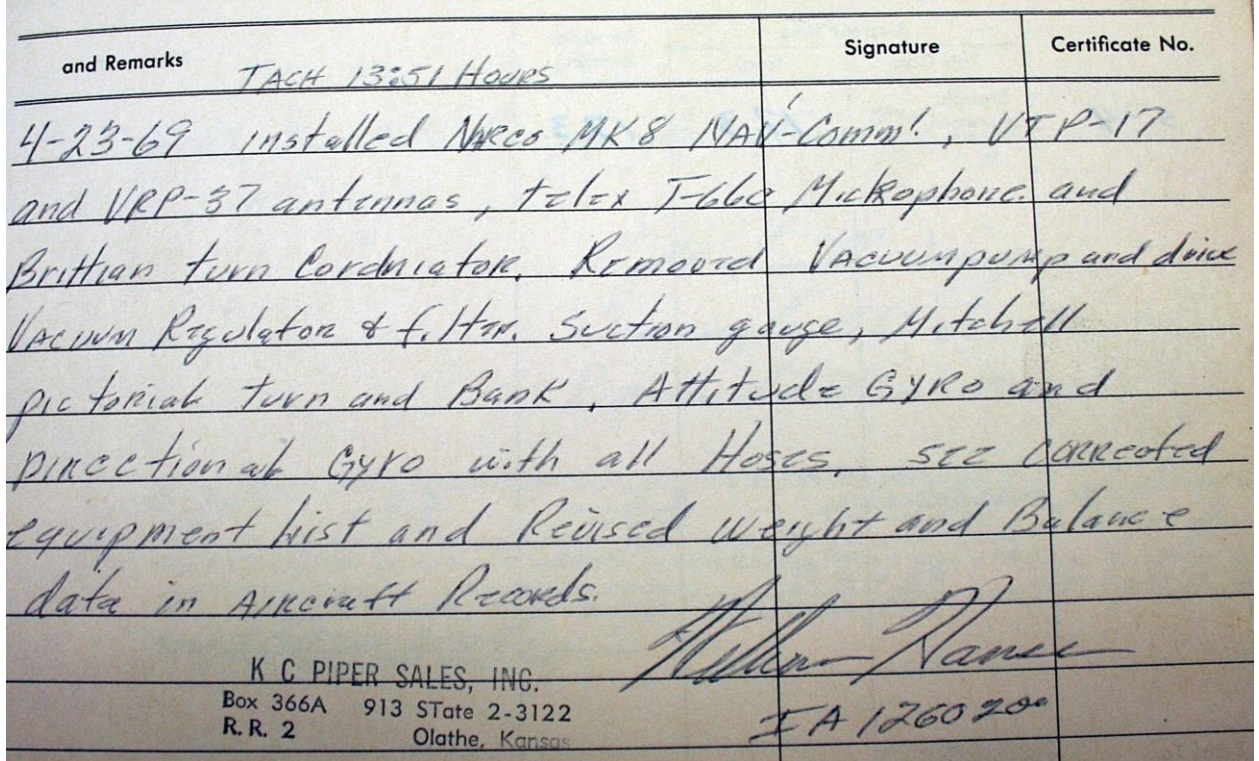 and Remarks Signature Certificate No.
TACH 13:51 Hours
4-23-69 installed Narco MK8 NAV-Comm', VTP-17
and VRP-37 antennas, telex T-660 Mickrophone and
Brittian turn Cordniator. Removed Vacuum pump and drive
Vacuum Regulator & filter. Suction gauge, Mitchell
pictorial turn and Bank, Attitude GYRO and
Directional Gyro with all Hoses, see corrected
equipment list and Revised weight and Balance
data in Aircraft Records.
K C PIPER SALES, INC.
Box 366A 913 STate 2-3122
R. R. 2 Olathe, Kansas
IA 126020